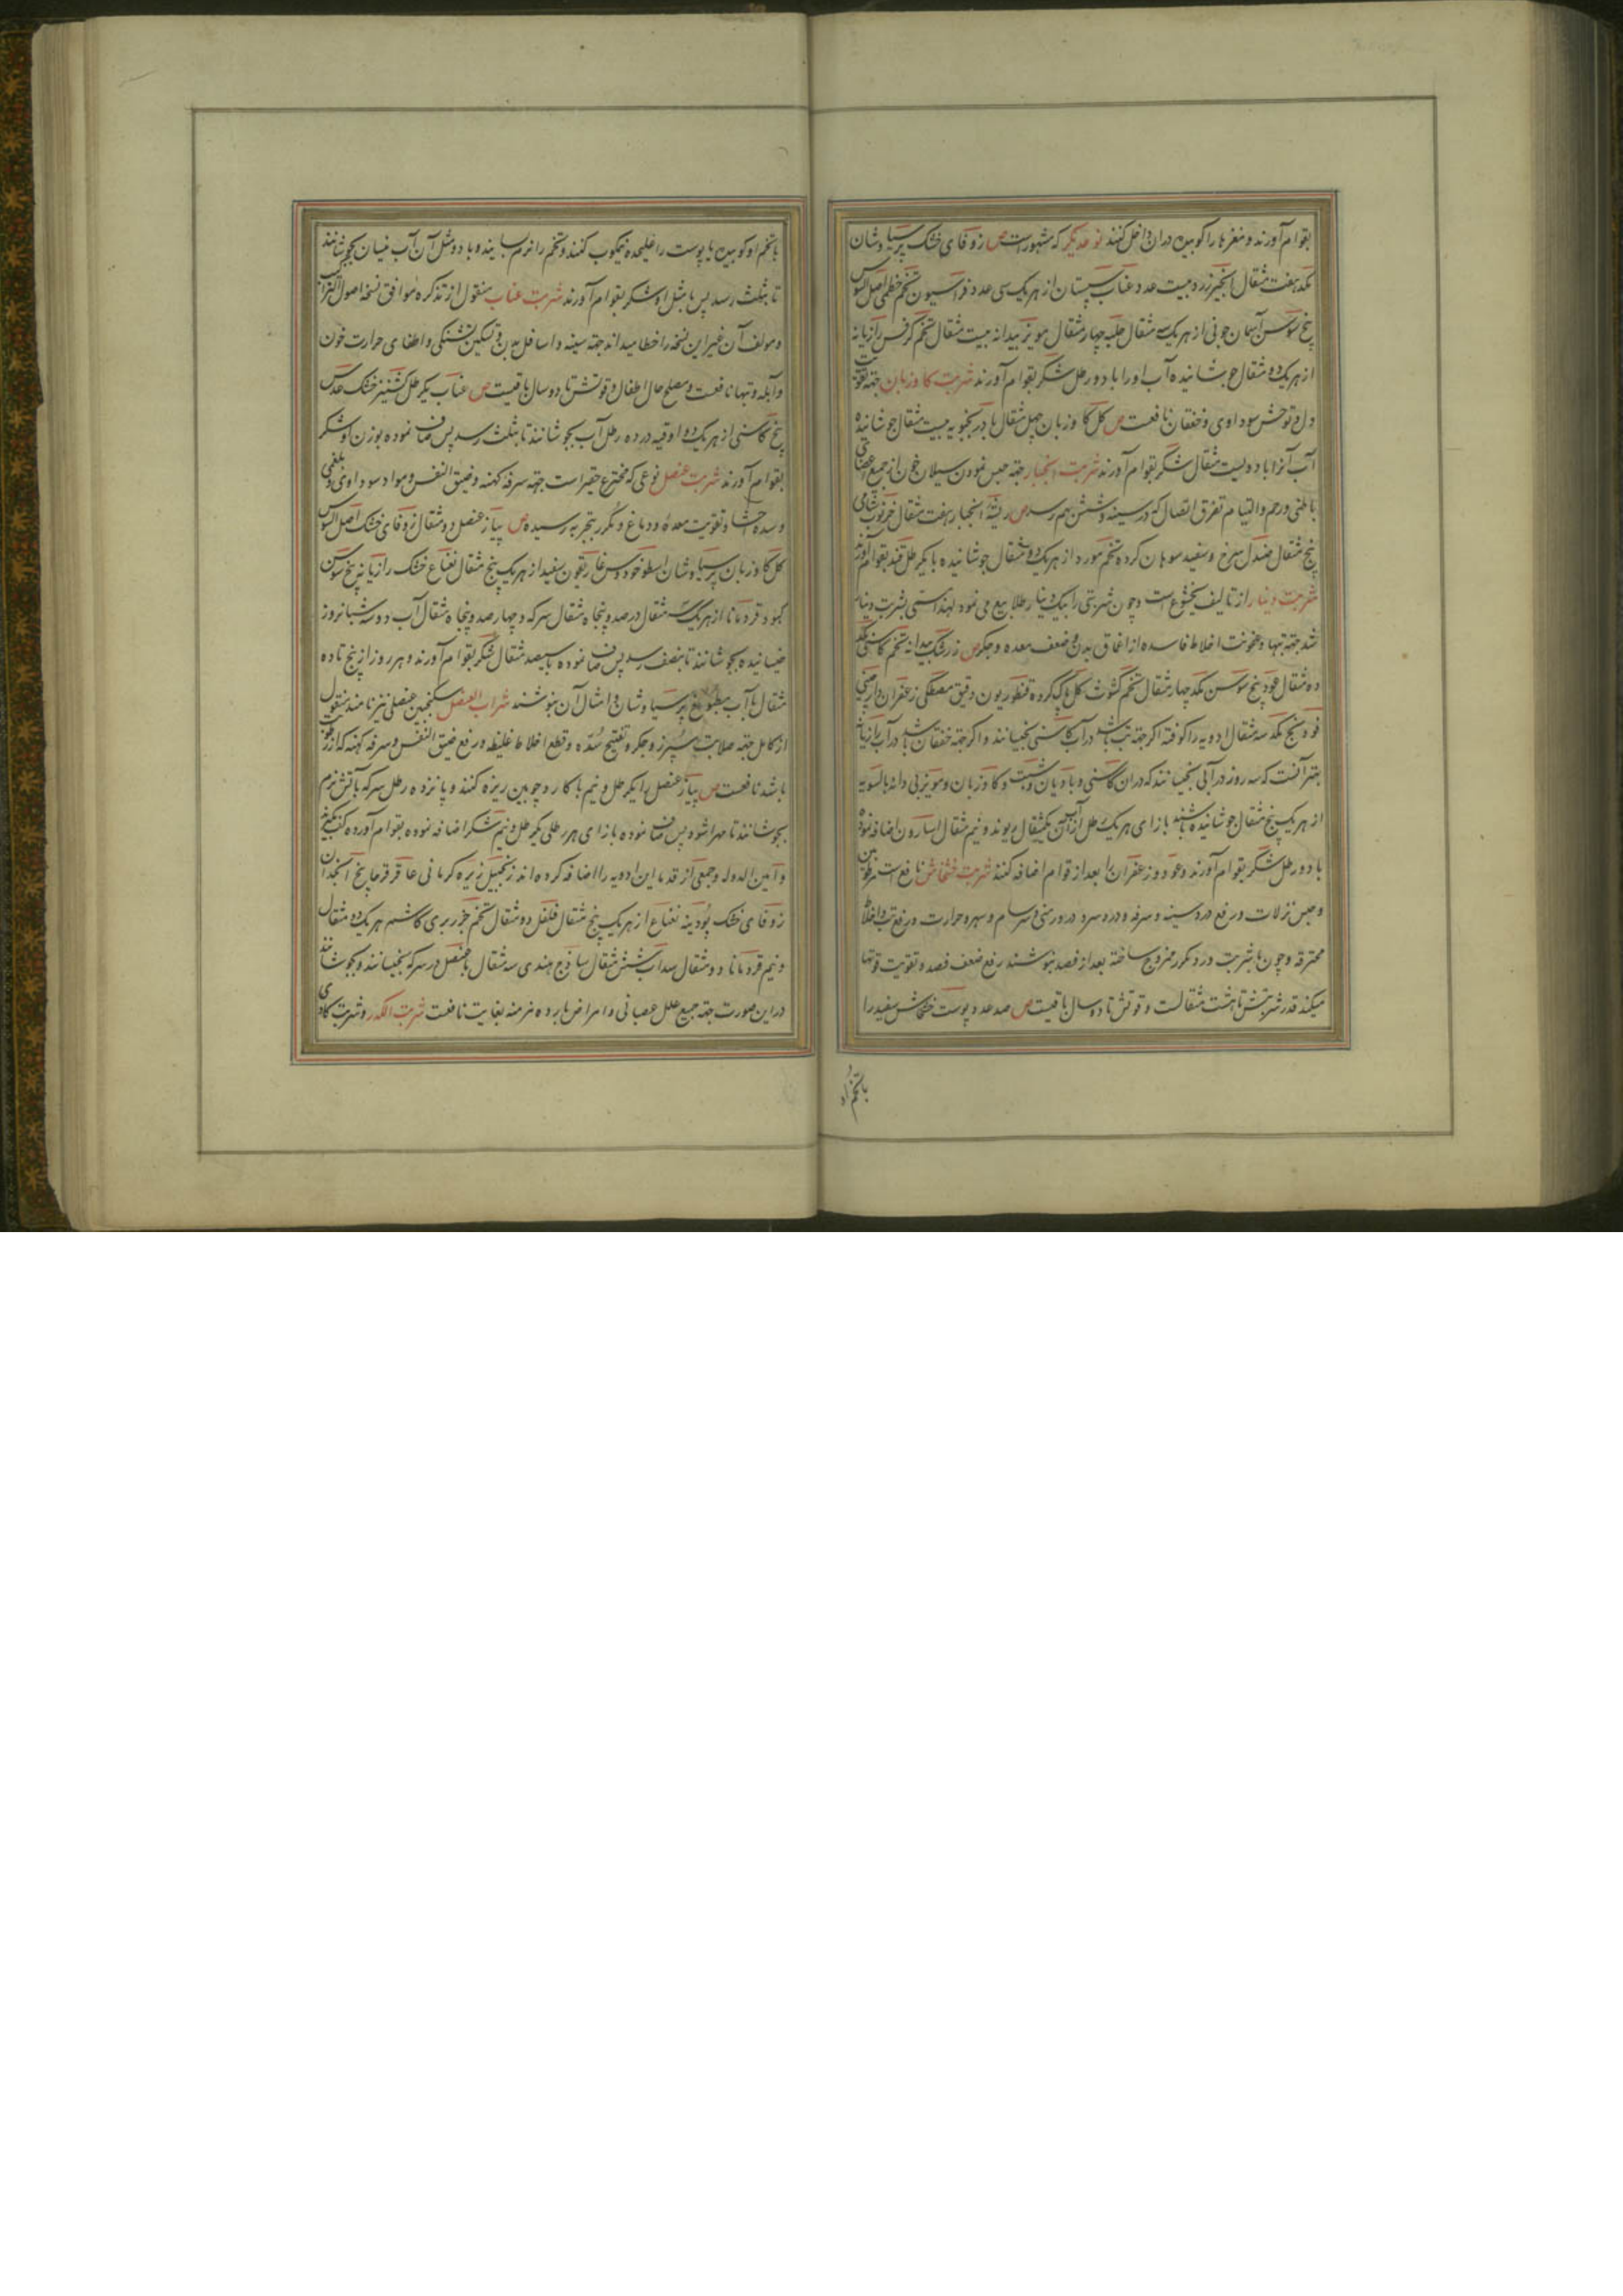 بقوام آورند و مغزها را کوبیده دران داخل کنند نوعدیکر که مشهورست ص زوفای خشک پرسیاوشان
یکد هفت مثقال انجیر زرد بیست عدد عناب سپستان از هر یک سی عدد فراسیون تخم خطمی اصل السوس
بیخ سوسن آسمان جونی از هر یک سه مثقال حلبه چهار مثقال مویز بیدانه بیست مثقال تخم کرفس رازیانه
از هر یک دو مثقال جوشانیده آب او را با دو رطل شکر بقوام آورند شربت کاوزبان جهة تقویت
دل و توحش سوداوی و خفقان نافعست ص کل کاوزبان چهل مثقال بادرنجبویه بیست مثقال جوشانیده
آب آنرا با دویست مثقال شکر بقوام آورند شربت انجبار جهة حبس نمودن سیلان خون از جمیع اعضای
باطنی و رحم و التیام تفرق اتصال که در سینه و شش بهم رسد ص ریشه انجبار هفت مثقال خرنوب شامی
پنج مثقال صندل سرخ و سفید سوهان کرده تخم مورد از هر یک دو مثقال جوشانیده با یکرطل قند بقوام آورند
شربت دینار از تالیف بختیشوع است و چون شربتی را بیک دینار طلا بیع می نمود لهذا مسمی بشربت دینار
شد جهة تبها و عفونت اخلاط فاسده از اعماق بدن و ضعف معده و جکر ص زرشک بیدانه تخم کاسنی یکد
ده مثقال عود بیخ سوسن یکد چهار مثقال تخم کشوث کل پاک کرده قنطوریون دقیق مصطکی زعفران دارچینی
فوه بنج یکد سه مثقال ادویه را کوفته اکر جهة تب باشد در آب کاسنی بخیسانند و اکر جهة خفقان باشد در آب رازیانه
بهتر آنست که سه روز در آبی بخیسانند که دران کاسنی و بادیان و شبت و کاوزبان و مویز بی دانه بالسویه
از هر یک پنج مثقال جوشانیده باشند بازای هر یک رطل ازان آب یکمثقال ریوند و نیم مثقال اسارون اضافه نموده
با دو رطل شکر بقوام آورند و عود و زعفران را بعد از قوام اضافه کنند شربت خشخاش نافع است
و حبس نزلات و رفع درد سینه و سرفه و درد سر و دوار منی و سرسام و سهر و حرارت و رفع تب و اخلاط
محترقه و چون با شربت ورد مکرر ممزوج ساخته بعد از فصد بنوشند رفع ضعف فصد و تقویت قوتها
میکند قدر شربتش تا هشت مثقالست و قوتش تا دو سال باقیست ص صد عدد پوست خشخاش سفید را
با تخم او
با تخم او کوبیده یا پوست را علیحده نیمکوب کنند و تخم را نرم سایند و با دو مثل آن آب نیسان بجوشانند
تا بثلث رسد پس با مثل او شکر بقوام آورند شربت عناب منقول از تذکره موافق نسخه اصول التراکیب
و مولف آن غیر این نسخه را خطا میداند جهة سینه و اسافل بدن و تسکین تشنکی و اطفای حرارت خون
و آبله و تبها نافعست و مصلح حال اطفال و قوتش تا دو سال باقیست ص عناب یکرطل کشنیز خشک عدس
بیخ کاسنی از هر یک دو اوقیه در ده رطل آب بجوشانند تا بثلث رسد پس صاف نموده بوزن او شکر
بقوام آورند شربت عنصل نوعی که مخترع حقیر است جهة سرفه کهنه و ضیق النفس و مواد سوداوی و بلغمی
و سده احشا و تقویت معده و دماغ و مکرر بتجربه رسیده ص پیاز عنصل دو مثقال زوفای خشک اصل السوس
کل کاوزبان پرسیاوشان اسطوخودوس غاریقون سفید از هر یک پنج مثقال نعناع خشک رازیانه بیخ سوسن
کبود قردمانا از هر یک سه مثقال در صد و پنجاه مثقال سرکه و چهار صد و پنجاه مثقال آب دو سه شبانروز
خیسانیده بجوشانند تا بنصف رسد پس صاف نموده با سیصد مثقال شکر بقوام آورند و هر روز از پنج تا ده
مثقال با آب مطبوخ پرسیاوشان و امثال آن بنوشند شراب العنصل سکنجبین عنصلی نیز نامند منقول
از کامل جهة صلابت سپرز و جکر و تفتیح سده و قطع اخلاط غلیظه و رفع ضیق النفس و سرفه کهنه که از رطوبت
باشد نافعست ص پیاز عنصل را یکرطل و نیم با کارد چوبین ریزه کنند و پانزده رطل سرکه بآتش نرم
بجوشانند تا مهرا شود پس صاف نموده بازای هر رطلی یکرطل و نیم شکر اضافه نموده بقوام آورده کف بکیرند
و امین الدوله و جمعی از قدما این ادویه را اضافه کرده اند زنجبیل زیره کرمانی عاقرقرحا بیخ انجدان
زوفای خشک پودینه نعناع از هر یک پنج مثقال فلفل دو مثقال تخم جزر بری کاشم هر یک دو مثقال
و نیم قردمانا دو مثقال سداب شش مثقال ساذج هندی سه مثقال با عنصل در سرکه بخیسانند و بجوشانند
در این صورت جهة جمیع علل عصبانی و امراض بارده مزمنه بغایت نافعست شربت الکدر و شربت کادی